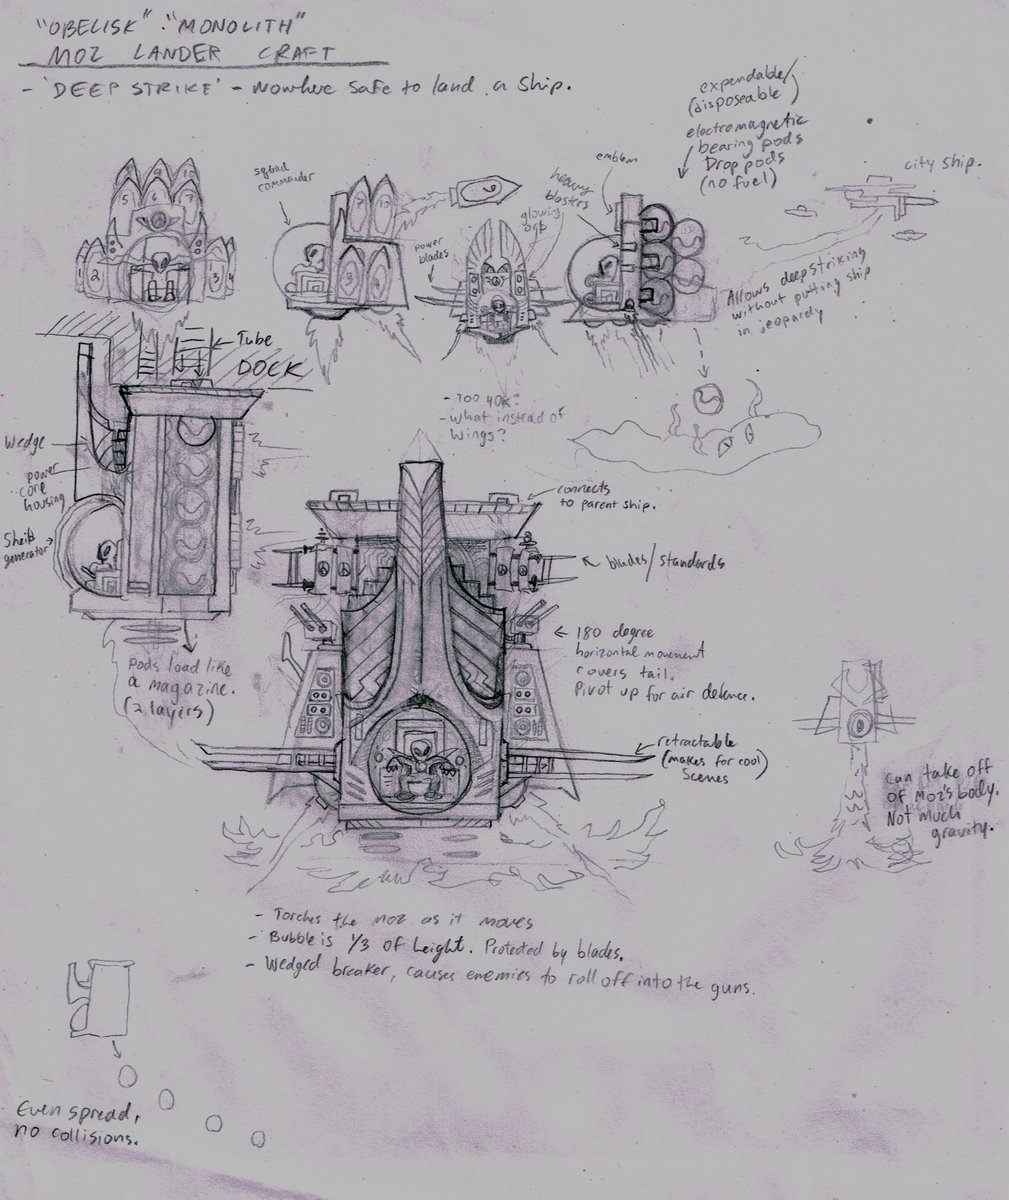 "OBELISK" · "MONOLITH"
MOZ LANDER CRAFT
- 'DEEP STRIKE' - Nowhere safe to land a ship.
expendable/
(disposeable)
electromagnetic
bearing pods
Drop pods
(no fuel)
city ship.
emblem
squad
commander
heavy
blasters
glowing
power
blades
5 6 7
1 2 3 4
Allows deepstriking
without putting ship
in jeopardy
Tube
DOCK
- Too 40K?
- what instead of
wings?
wedge
power
core
housing
Sheild
generator
connects
to parent ship.
blades/standards
180 degree
horizontal movement
covers tail.
Pivot up for air defence.
pods load like
a magazine.
(2 layers)
retractable
(makes for cool)
scenes
can take off
of Moz's body.
Not much
gravity.
- Torches the moz as it moves
- Bubble is 1/3 of height. Protected by blades.
- Wedged breaker, causes enemies to roll off into the guns.
Even spread,
no collisions.